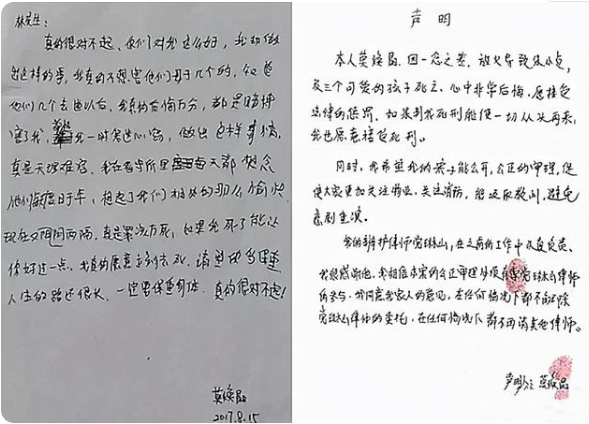 林先生:
真的很对不起、你们对我这么好，我却做
出这样的事，我真的不想害他们母子几个的，知道
他们几个去世以后，我真的后悔万分，都是赌博
害我，我一时鬼迷心窍，做出这样事情，
真是天理难容。我在看守所里每天都想念
他们度日于年，想起了我们相处的那么愉快
现在又阴阳两隔，真是罪该万死，如果我死了能让
你好过一点，我真的愿意立刻去死，请您也多保重
人生的路还很长，一定要保重身体，真的很对不起!
莫焕晶
2017.8.15
声明
本人莫焕晶，因一念之差，放火导致朱小贞
及三个可爱的孩子死亡，心中非常后悔，愿接受
法律的惩罚，如果判我死刑能使一切从头再来，
我也愿意接受死刑。
同时，我希望我的案子能公开，公正的审理，促
使大家更加关注物业，关注消防，能汲取教训，避免
悲剧重演。
我的辩护律师党琳山，在之前的工作中认真负责，
我很感谢他，我相信本案的公正审理必须有党琳山律师
的参与，我同意我家人的意见，在任何情况下都不解除
党琳山律师的委托，在任何情况下都不再请其他律师。
声明人：莫焕晶